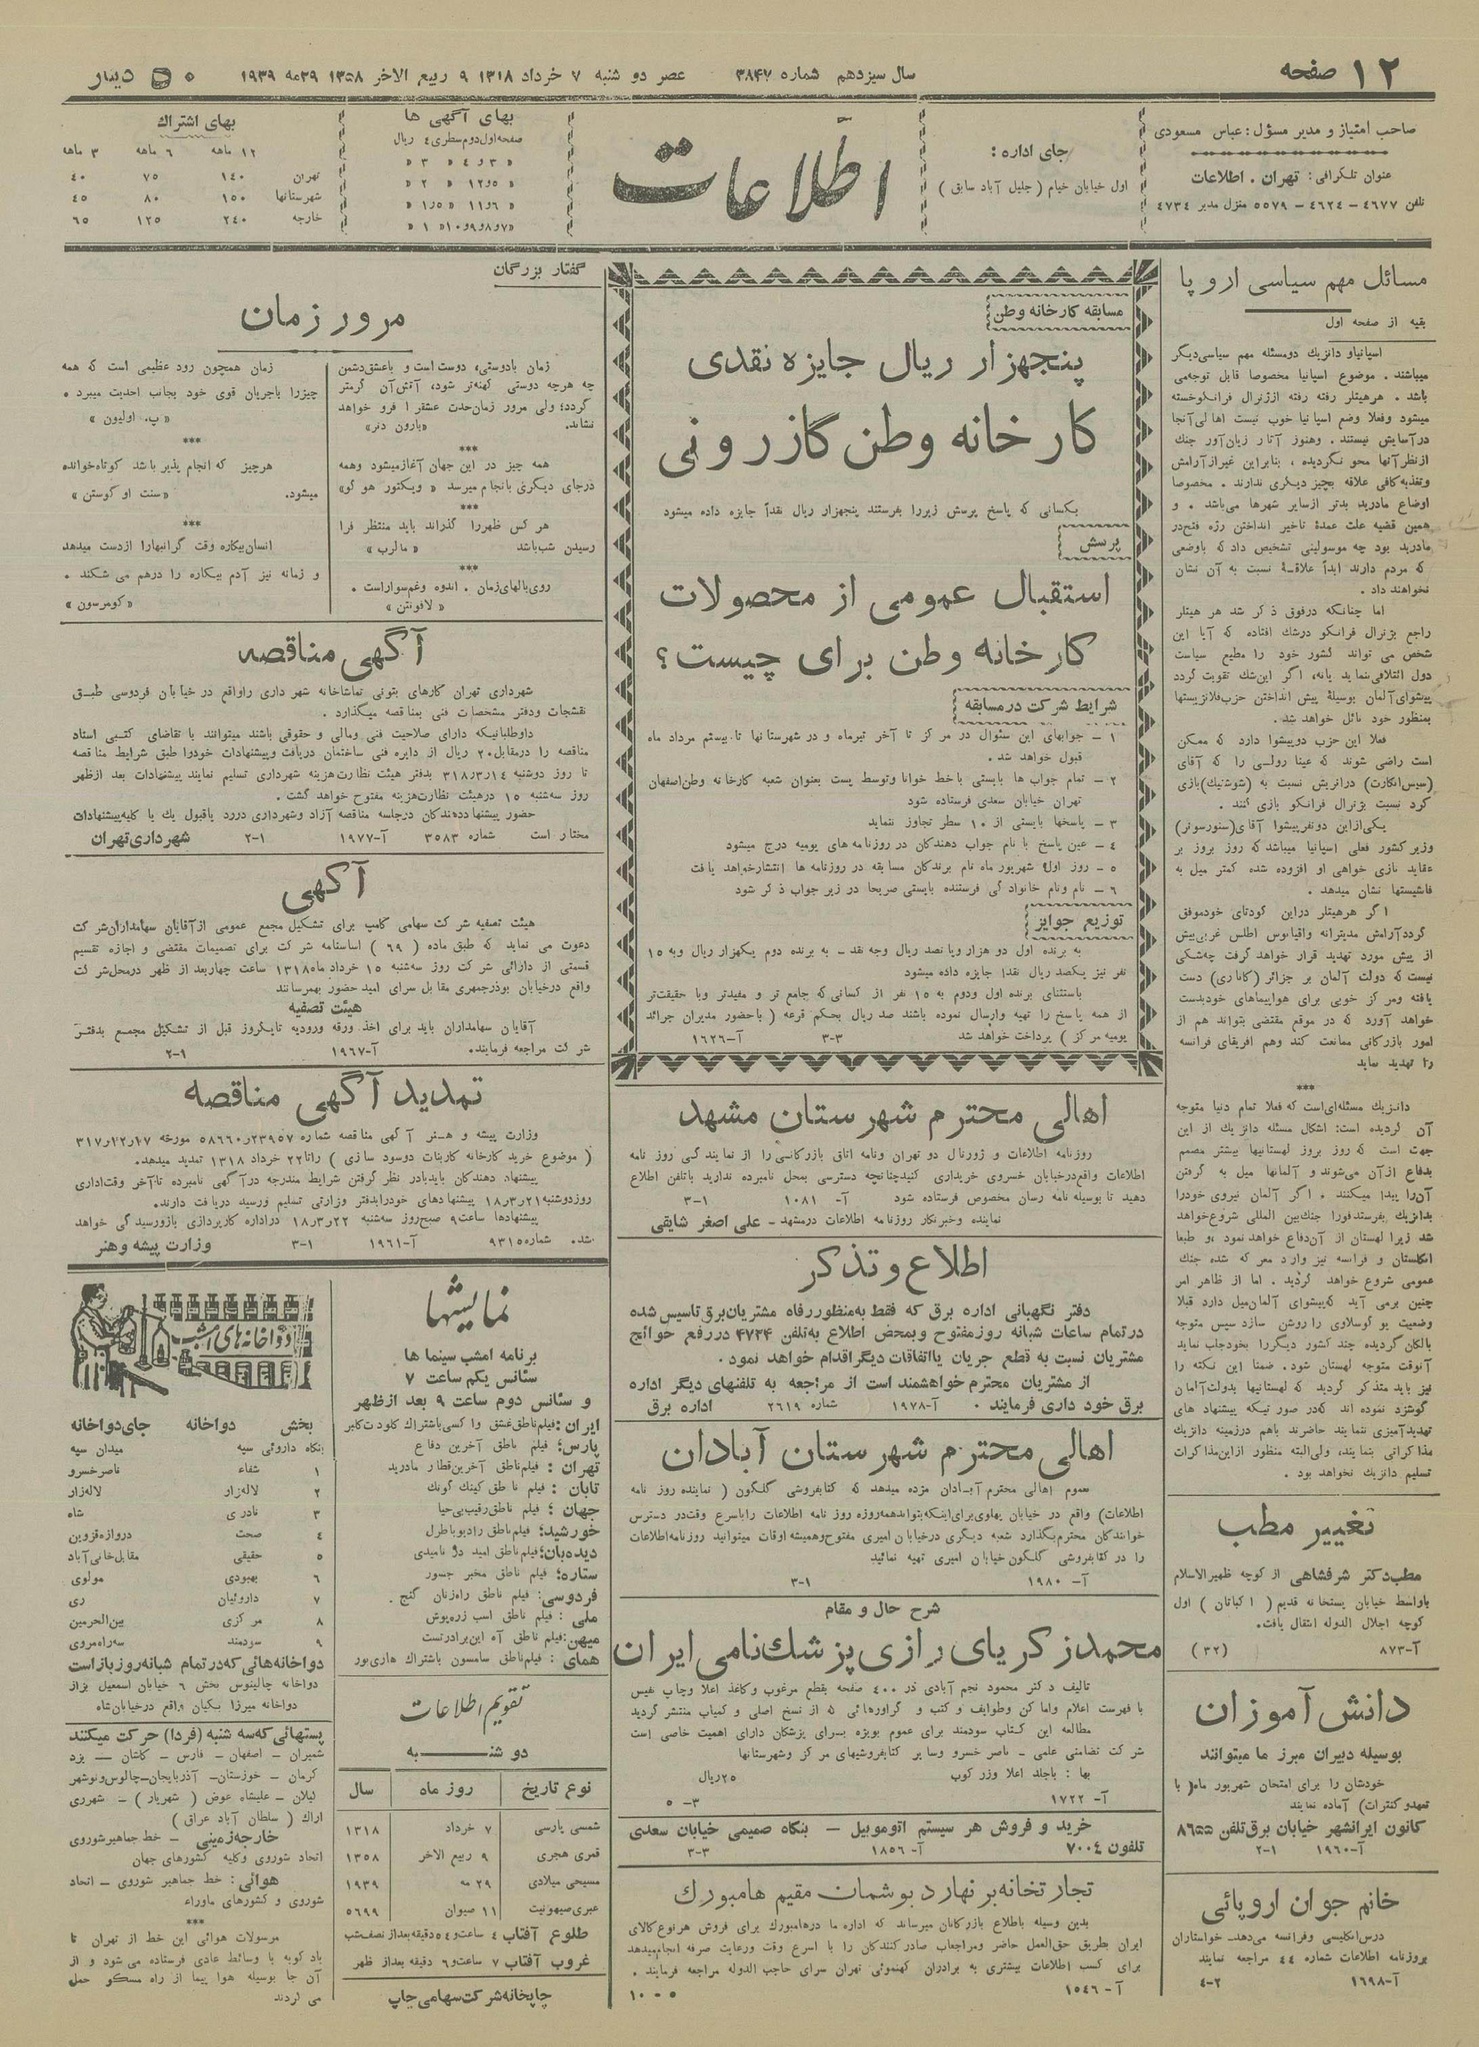 ۱۲ صفحه
سال سیزدهم شماره ۳۸۴۷ عصر دو شنبه ۷ خرداد ۱۳۱۸ ۹ ربیع الاخر ۱۳۵۸ ۲۹مه ۱۹۳۹
۵۰ دینار
صاحب امتیاز و مدیر مسؤل: عباس مسعودی
عنوان تلگرافی: تهران . اطلاعات
تلفن ۴۶۷۷ – ۴۶۲۴ – ۵۵۷۹ منزل مدیر ۴۷۳۴
جای اداره :
اول خیابان خیام ( جلیل آباد سابق )
اطلاعات
بهای آگهی ها
صفحه اول دوم سطری ٤ ریال
« ۳و٤ « ۳ «
« ۵و۱۲ « ۲ «
« ۶و۱۱ « ۱٫۵ «
«۷و۸و۹و۱۰« ۱ «
بهای اشتراك
۱۲ ماهه ۶ ماهه ۳ ماهه
تهران ۱۴۰ ۷۵ ۴۰
شهرستانها ۱۵۰ ۸۰ ۴۵
خارجه ۲۴۰ ۱۲۵ ۶۵
مسائل مهم سیاسی اروپا
بقیه از صفحه اول
اسپانیاو دانزیك دومسئله مهم سیاسی‌دیگر
میباشند . موضوع اسپانیا مخصوصا قابل توجه‌می
باشد . هرهیتلر رفته رفته ازژنرال فرانکوخسته
میشود وفعلا وضع اسپانیا خوب نیست اهالی‌آنجا
درآسایش نیستند . وهنوز آثار زیان‌آور جنك
ازنظرآنها محو نگردیده ، بنابراین غیرازآرامش
وتغذیه‌کافی علاقه بچیز دیگری ندارند . مخصوصا
اوضاع مادرید بدتر ازسایر شهرها می‌باشد . و
همین قضیه علت عمدهٔ تاخیر انداختن رژه فتح‌در
مادرید بود چه موسولینی تشخیص داد که باوضعی
که مردم دارند ابداً علاقهٔ نسبت به آن نشان
نخواهند داد .
اما چنانکه درفوق ذکر شد هر هیتلر
راجع بژنرال فرانکو درشك افتاده که آیا این
شخص می تواند کشور خود را مطیع سیاست
دول ائتلافی‌نماید یانه، اگر این‌شك تقویت گردد
پیشوای‌آلمان بوسیلهٔ پیش انداختن حزب‌فلانژیستها
بمنظور خود نائل خواهد شد .
فعلا این حزب دوپیشوا دارد که ممکن
است راضی شوند که عینا رولی را که آقای
(سیس‌انکارت) دراتریش نسبت به (شوشنیك)بازی
کرد نسبت بژنرال فرانکو بازی کنند .
یکی‌ازاین دونفرپیشوا آقای(سنورسونر)
وزیرکشور فعلی اسپانیا میباشدکه روز بروز بر
عقاید نازی خواهی او افزوده شده کمتر میل به
فاشیستها نشان میدهد .
اگر هرهیتلر دراین کودتای خودموفق
گرددآرامش مدیترانه واقیانوس اطلس غربی‌بیش
از پیش مورد تهدید قرار خواهد گرفت چه‌شکی
نیست که دولت آلمان بر جزائر (کاناری) دست
یافته ومرکز خوبی برای هواپیماهای خودبدست
خواهد آورد که در موقع مقتضی بتواند هم از
امور بازرگانی ممانعت کند وهم افریقای فرانسه
را تهدید نماید
***
دانزیك مسئله‌ای‌است که‌فعلا تمام دنیا متوجه
آن گردیده است: اشکال مسئله دانزیك از این
جهت است که روز بروز لهستانیها بیشتر مصمم
بدفاع ازآن می‌شوند و آلمانها میل به گرفتن
آن‌را پیدا میکنند . اگر آلمان نیروی خودرا
بدانزیك بفرستدفورا جنك‌بین المللی شروع‌خواهد
شد زیرا لهستان از آن‌دفاع خواهد نمود ،و طبعا
انگلستان و فرانسه نیز وارد معرکه شده جنك
عمومی شروع خواهد گردید . اما از ظاهر امر
چنین برمی آید که‌پیشوای آلمان‌میل دارد قبلا
وضعیت یوگوسلاوی را روشن سازد سپس متوجه
بالکان گردیده چند کشور دیگررا بخودجلب نماید
آنوقت متوجه لهستان شود. ضمنا این نکته را
نیز باید متذکر گردید که لهستانیها بدولت‌آلمان
گوشزد نموده اند که‌در صورتیکه پیشنهاد های
تهدیدآمیزی ننمایند حاضرند باهم درزمینه دانزیك
مذاکراتی بنمایند، ولی‌البته منظور ازاین‌مذاکرات
تسلیم دانزیك نخواهد بود .
تغییر مطب
مطب‌دکتر شرفشاهی از کوچه ظهیرالاسلام
باواسط خیابان پستخانه قدیم ( اکباتان ) اول
کوچه اجلال الدوله انتقال یافت.
آ–۸۷۳ (۳۲)
دانش آموزان
بوسیله دبیران مبرز ما میتوانند
خودشان را برای امتحان شهریور ماه( با
تعهدوکنترات) آماده نمایند
کانون ایرانشهر خیابان برق‌تلفن ۸۶۵۵
آ–۱۹۶۰ ۲–۱
خانم جوان اروپائی
درس‌انگلیسی وفرانسه می‌دهد– خواستاران
بروزنامه اطلاعات شماره ۴۴ مراجعه نمایند
آ–۱۶۹۸ ۴–۲
مسابقه کارخانه وطن
پنجهزار ریال جایزه نقدی
کارخانه وطن گازرونی
بکسانی که پاسخ پرسش زیررا بفرستند پنجهزار ریال نقداً جایزه داده میشود
پرسش
استقبال عمومی از محصولات
کارخانه وطن برای چیست؟
شرایط شرکت درمسابقه
۱ – جوابهای این سئوال در مرکز تا آخر تیرماه و در شهرستانها تا بیستم مرداد ماه
قبول خواهد شد .
۲ – تمام جواب ها بایستی باخط خوانا وتوسط پست بعنوان شعبه کارخانه وطن‌اصفهان
تهران خیابان سعدی فرستاده شود
۳ – پاسخها بایستی از ۱۰ سطر تجاوز ننماید
۴ – عین پاسخ با نام جواب دهندگان در روزنامه های یومیه درج میشود
۵ – روز اول شهریور ماه نام برندگان مسابقه در روزنامه ها انتشارخواهد یافت
۶ – نام ونام خانوادگی فرستنده بایستی صریحا در زیر جواب ذکر شود
توزیع جوایز
به برنده اول دو هزار وپانصد ریال وجه نقد – به برنده دوم یکهزار ریال وبه ۱۵
نفر نیز یکصد ریال نقدا جایزه داده میشود
باستثنای برنده اول ودوم به ۱۵ نفر از کسانی که جامع تر و مفیدتر وبا حقیقت‌تر
از همه پاسخ را تهیه وارسال نموده باشند صد ریال بحکم قرعه ( باحضور مدیران جرائد
یومیه مرکز ) پرداخت خواهد شد ۳–۳ آ–۱۶۲۶
اهالی محترم شهرستان مشهد
روزنامه اطلاعات و ژورنال دو تهران ونامه اتاق بازرگانی را از نمایندگی روز نامه
اطلاعات واقع‌درخیابان خسروی خریداری کنیدچنانچه دسترسی بمحل نامبرده ندارید باتلفن اطلاع
دهید تا بوسیله نامه رسان مخصوص فرستاده شود آ– ۱۰۸۱ ۳–۱
نماینده وخبرنگار روزنامه اطلاعات درمشهد – علی اصغر شایقی
اطلاع و تذکر
دفتر نگهبانی اداره برق که فقط به‌منظوررفاه مشتریان‌برق تاسیس شده
درتمام ساعات شبانه روزمفتوح وبمحض اطلاع به‌تلفن ۴۷۲۴ دررفع حوائج
مشتریان نسبت به قطع جریان یااتفاقات دیگراقدام خواهد نمود .
از مشتریان محترم خواهشمند است از مراجعه به تلفنهای دیگر اداره
برق خود داری فرمایند . آ–۱۹۷۸ شماره ۲۶۱۹ اداره برق
اهالی محترم شهرستان آبادان
عموم اهالی محترم آبادان مژده میدهد که کتابفروشی گلگون ( نماینده روز نامه
اطلاعات) واقع در خیابان پهلوی‌برای‌اینکه‌بتواندهمه‌روزه روز نامه اطلاعات راباسرع وقت‌در دسترس
خوانندگان محترم‌بگذارد شعبه دیگری درخیابان امیری مفتوح‌وهمیشه‌اوقات میتوانید روزنامه‌اطلاعات
را در کتابفروشی گلگون‌خیابان امیری تهیه نمائید
آ– ۱۹۸۰ ۳–۱
شرح حال و مقام
محمدزکریای رازی پزشك‌نامی ایران
تالیف دکتر محمود نجم آبادی در ۴۰۰ صفحه بقطع مرغوب وکاغذ اعلا وچاپ نفیس
با فهرست اعلام واماکن وطوایف و کتب و گراورهائی که از نسخ اصلی و کمیاب منتشر گردید
مطالعه این کتاب سودمند برای عموم بویژه برای پزشکان دارای اهمیت خاصی است
شرکت تضامنی علمی – ناصر خسرو وسایر کتابفروشیهای مرکز وشهرستانها
بها : باجلد اعلا وزرکوب ۲۵ریال
آ– ۱۷۲۲ ۳–۵
خرید و فروش هر سیستم اتوموبیل – بنگاه صمیمی خیابان سعدی
تلفون ۷۰۰۴ آ– ۱۸۵۶ ۳–۳
تجارتخانه برنهارد بوشمان مقیم هامبورك
بدین وسیله باطلاع بازرگانان میرساند که اداره ما درهامبورك برای فروش هرنوع‌کالای
ایران بطریق حق‌العمل حاضر ومراجعاب صادرکنندگان را با اسرع وقت ورعایت صرفه انجام‌میدهد
برای کسب اطلاعات بیشتری به برادران کهنموئی تهران سرای حاجب الدوله مراجعه فرمایند .
آ–۱۵۴۶ ۱۰–۵
گفتار بزرگان
مرور زمان
زمان بادوستی، دوست‌است و باعشق‌دشمن
چه هرچه دوستی کهنه‌تر شود، آتش‌آن گرمتر
گردد؛ ولی مرور زمان‌حدت عشق‌را فرو خواهد
نشاند. «بارون دنر»
***
همه چیز در این جهان آغازمیشود وهمه
درجای دیگری باتجام میرسد « ویکتور هوگو»
***
هر کس ظهررا گذراند باید منتظر فرا
رسیدن شب‌باشد « مالرب »
***
روی‌بالهای‌زمان . اندوه وغم‌سواراست .
« لافونتن »
زمان همچون رود عظیمی است که همه
چیزرا باجریان قوی خود بجانب احدیت میبرد .
« پ. اولیون »
***
هرچیز که انجام پذیر باشد کوتاه‌خوانده
میشود. «سنت اوگوستن »
***
انسان‌بیکاره وقت گرانبهارا ازدست میدهد
و زمانه نیز آدم بیکاره را درهم می شکند .
« کومرسون »
آگهی مناقصه
شهرداری تهران کارهای بتونی تماشاخانه شهرداری راواقع در خیابان فردوسی طبق
نقشجات ودفتر مشخصات فنی بمناقصه میگذارد .
داوطلبانیکه دارای صلاحیت فنی ومالی و حقوقی باشند میتوانند با تقاضای کتبی اسناد
مناقصه را درمقابل ۲۰ ریال از دایره فنی ساختمان دریافت وپیشنهادات خودرا طبق شرایط مناقصه
تا روز دوشنبه ۱۴ر۳ر۳۱۸ بدفتر هیئت نظارت‌هزینه شهرداری تسلیم نمایند پیشنهادات بعد ازظهر
روز سه‌شنبه ۱۵ درهیئت نظارت‌هزینه مفتوح خواهد گشت .
حضور پیشنهاددهندگان درجلسه مناقصه آزاد وشهرداری دررد یاقبول یك یا کلیه‌پیشنهادات
مختار است شماره ۳۵۸۳ آ–۱۹۷۷ ۲–۱ شهرداری‌تهران
آگهی
هیئت تصفیه شرکت سهامی کلمپ برای تشکیل مجمع عمومی ازآقایان سهامداران‌شرکت
دعوت می نماید که طبق ماده ( ۶۹ ) اساسنامه شرکت برای تصمیمات مقتضی و اجازه تقسیم
قسمتی از دارائی شرکت روز سه‌شنبه ۱۵ خرداد ماه‌۱۳۱۸ ساعت چهاربعد از ظهر درمحل‌شرکت
واقع درخیابان بوذرجمهری مقابل سرای امید حضور بهمرسانند
هیئت تصفیه
آقایان سهامداران باید برای اخذ ورقه ورودیه تایکروز قبل از تشکیل مجمع بدفتر
شرکت مراجعه فرمایند. آ–۱۹۶۷ ۲–۱
تمدید آگهی مناقصه
وزارت پیشه و هنر آگهی مناقصه شماره ۲۳۹۵۷ر۵۸۶۶۰ مورخه ۱۷ر۱۲ر۳۱۷
( موضوع خرید کارخانه کاربنات دوسود سازی ) راتا۲۲ خرداد ۱۳۱۸ تمدید میدهد.
پیشنهاد دهندگان بایدبادر نظر گرفتن شرایط مندرجه درآگهی نامبرده تاآخر وقت‌اداری
روزدوشنبه۲۱ر۳ر۱۸ پیشنهادهای خودرابدفتر وزارتی تسلیم ورسید دریافت دارند.
پیشنهادها ساعت۹ صبح‌روز سه‌شنبه ۲۲ر۳ر۱۸ دراداره کارپردازی بازورسیدگی خواهد
شد. شماره ۹۳۱۵ آ–۱۹۶۱ ۳–۱ وزارت پیشه وهنر
نمایشها
برنامه امشب سینما ها
سئانس یکم ساعت ۷
و سئانس دوم ساعت ۹ بعد ازظهر
ایران: فیلم‌ناطق‌عشق وا کسی‌باشتراك کلودت‌کلبر
پارس؛ فیلم ناطق آخرین دفاع
تهران : فیلم‌ناطق آخرین‌قطار مادرید
تابان : فیلم ناطق کینك کونك
جهان ؛ فیلم ناطق‌رقیب‌بی‌حیا
خورشید؛ فیلم‌ناطق رادیوباطرل
دیده‌بان؛فیلم‌ناطق امید در ناامیدی
ستاره؛ فیلم ناطق مخبر جسور
فردوسی: فیلم ناطق راه‌زنان گنج .
ملی : فیلم ناطق اسب زره‌پوش
میهن:فیلم ناطق آه این‌برادرتست
همای : فیلم‌ناطق سامسون باشتراك هاری‌بور
تقویم اطلاعات
دو شنبه
نوع تاریخ روز ماه سال
شمسی پارسی ۷ خرداد ۱۳۱۸
قمری هجری ۹ ربیع الاخر ۱۳۵۸
مسیحی میلادی ۲۹ مه ۱۹۳۹
عبری‌صیهونیت ۱۱ صیوان ۵۶۹۹
طلوع آفتاب ۴ ساعت‌و۵۴دقیقه‌بعداز نصف‌شب
غروب آفتاب ۷ ساعت‌و۶ دقیقه‌بعداز ظهر
چاپخانه‌شرکت‌سهامی‌چاپ
دواخانه‌های امشب
بخش دواخانه جای‌دواخانه
بنگاه داروئی سپه میدان سپه
۱ شفاء ناصرخسرو
۲ لاله‌زار لاله‌زار
۳ نادری شاه
۴ صحت دروازه‌قزوین
۵ حقیقی مقابل‌خانی‌آباد
۶ بهبودی مولوی
۷ داروئیان ری
۸ مرکزی بین‌الحرمین
۹ سودمند سه‌راه‌مروی
دواخانه‌هائی‌که‌درتمام شبانه‌روزبازاست
دواخانه جالینوس بخش ۶ خیابان اسمعیل بزاز
دواخانه میرزا یکیان واقع درخیابان‌شاه
پستهائی‌که‌سه شنبه (فردا) حرکت میکنند
شمیران – اصفهان – فارس – کاشان – یزد
کرمان – خوزستان– آذربایجان–چالوس‌ونوشهر
گیلان – علیشاه عوض ( شهریار ) – شهرری
اراك ( سلطان آباد عراق )
خارجه‌زمینی – خط جماهیرشوروی
اتحاد شوروی وکلیه کشورهای جهان
هوائی: خط جماهیر شوروی – اتحاد
شوروی و کشورهای ماوراء
***
مرسولات هوائی این خط از تهران تا
بادکوبه با وسائط عادی فرستاده می شود و از
آن جا بوسیله هوا پیما از راه مسکو حمل
می گردند